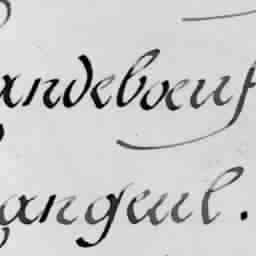 andebœuf
angeul.